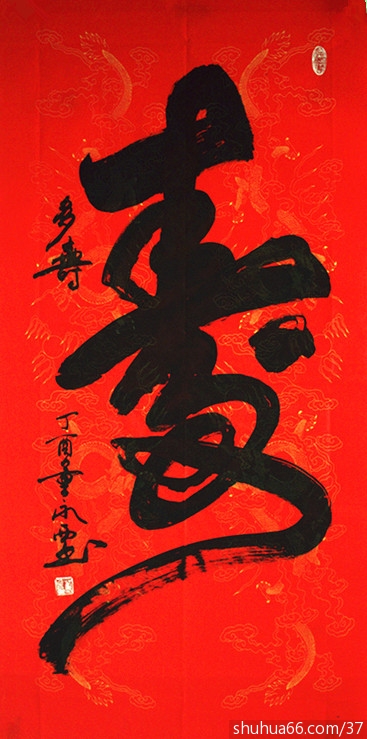 壽
多壽
丁酉
shuhua66.com/37